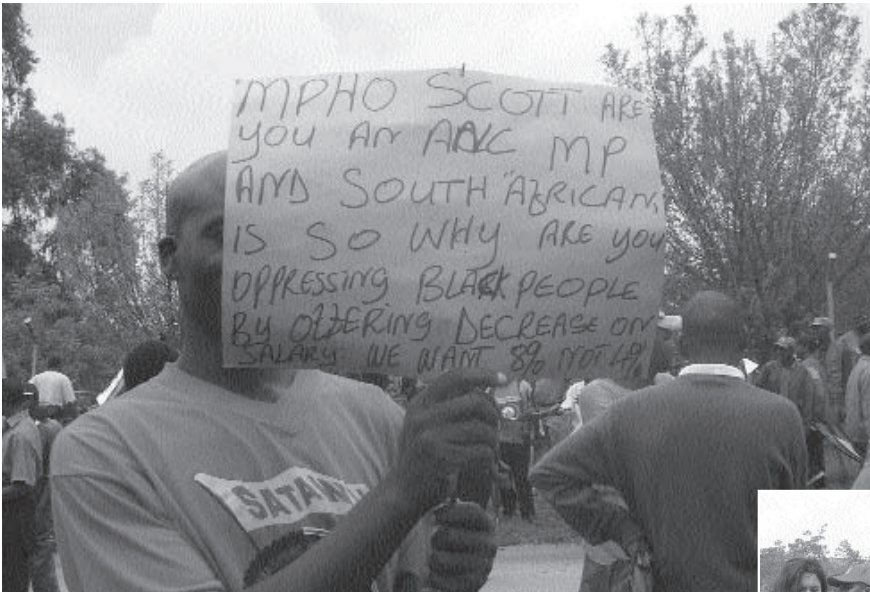 MPHO SCOTT ARE
YOU AN ANC MP
AND SOUTH AFRICAN,
IS SO WHY ARE YOU
OPPRESSING BLACK PEOPLE
BY OFFERING DECREASE ON
SALARY. WE WANT 8% NOT 4%
SATAWU